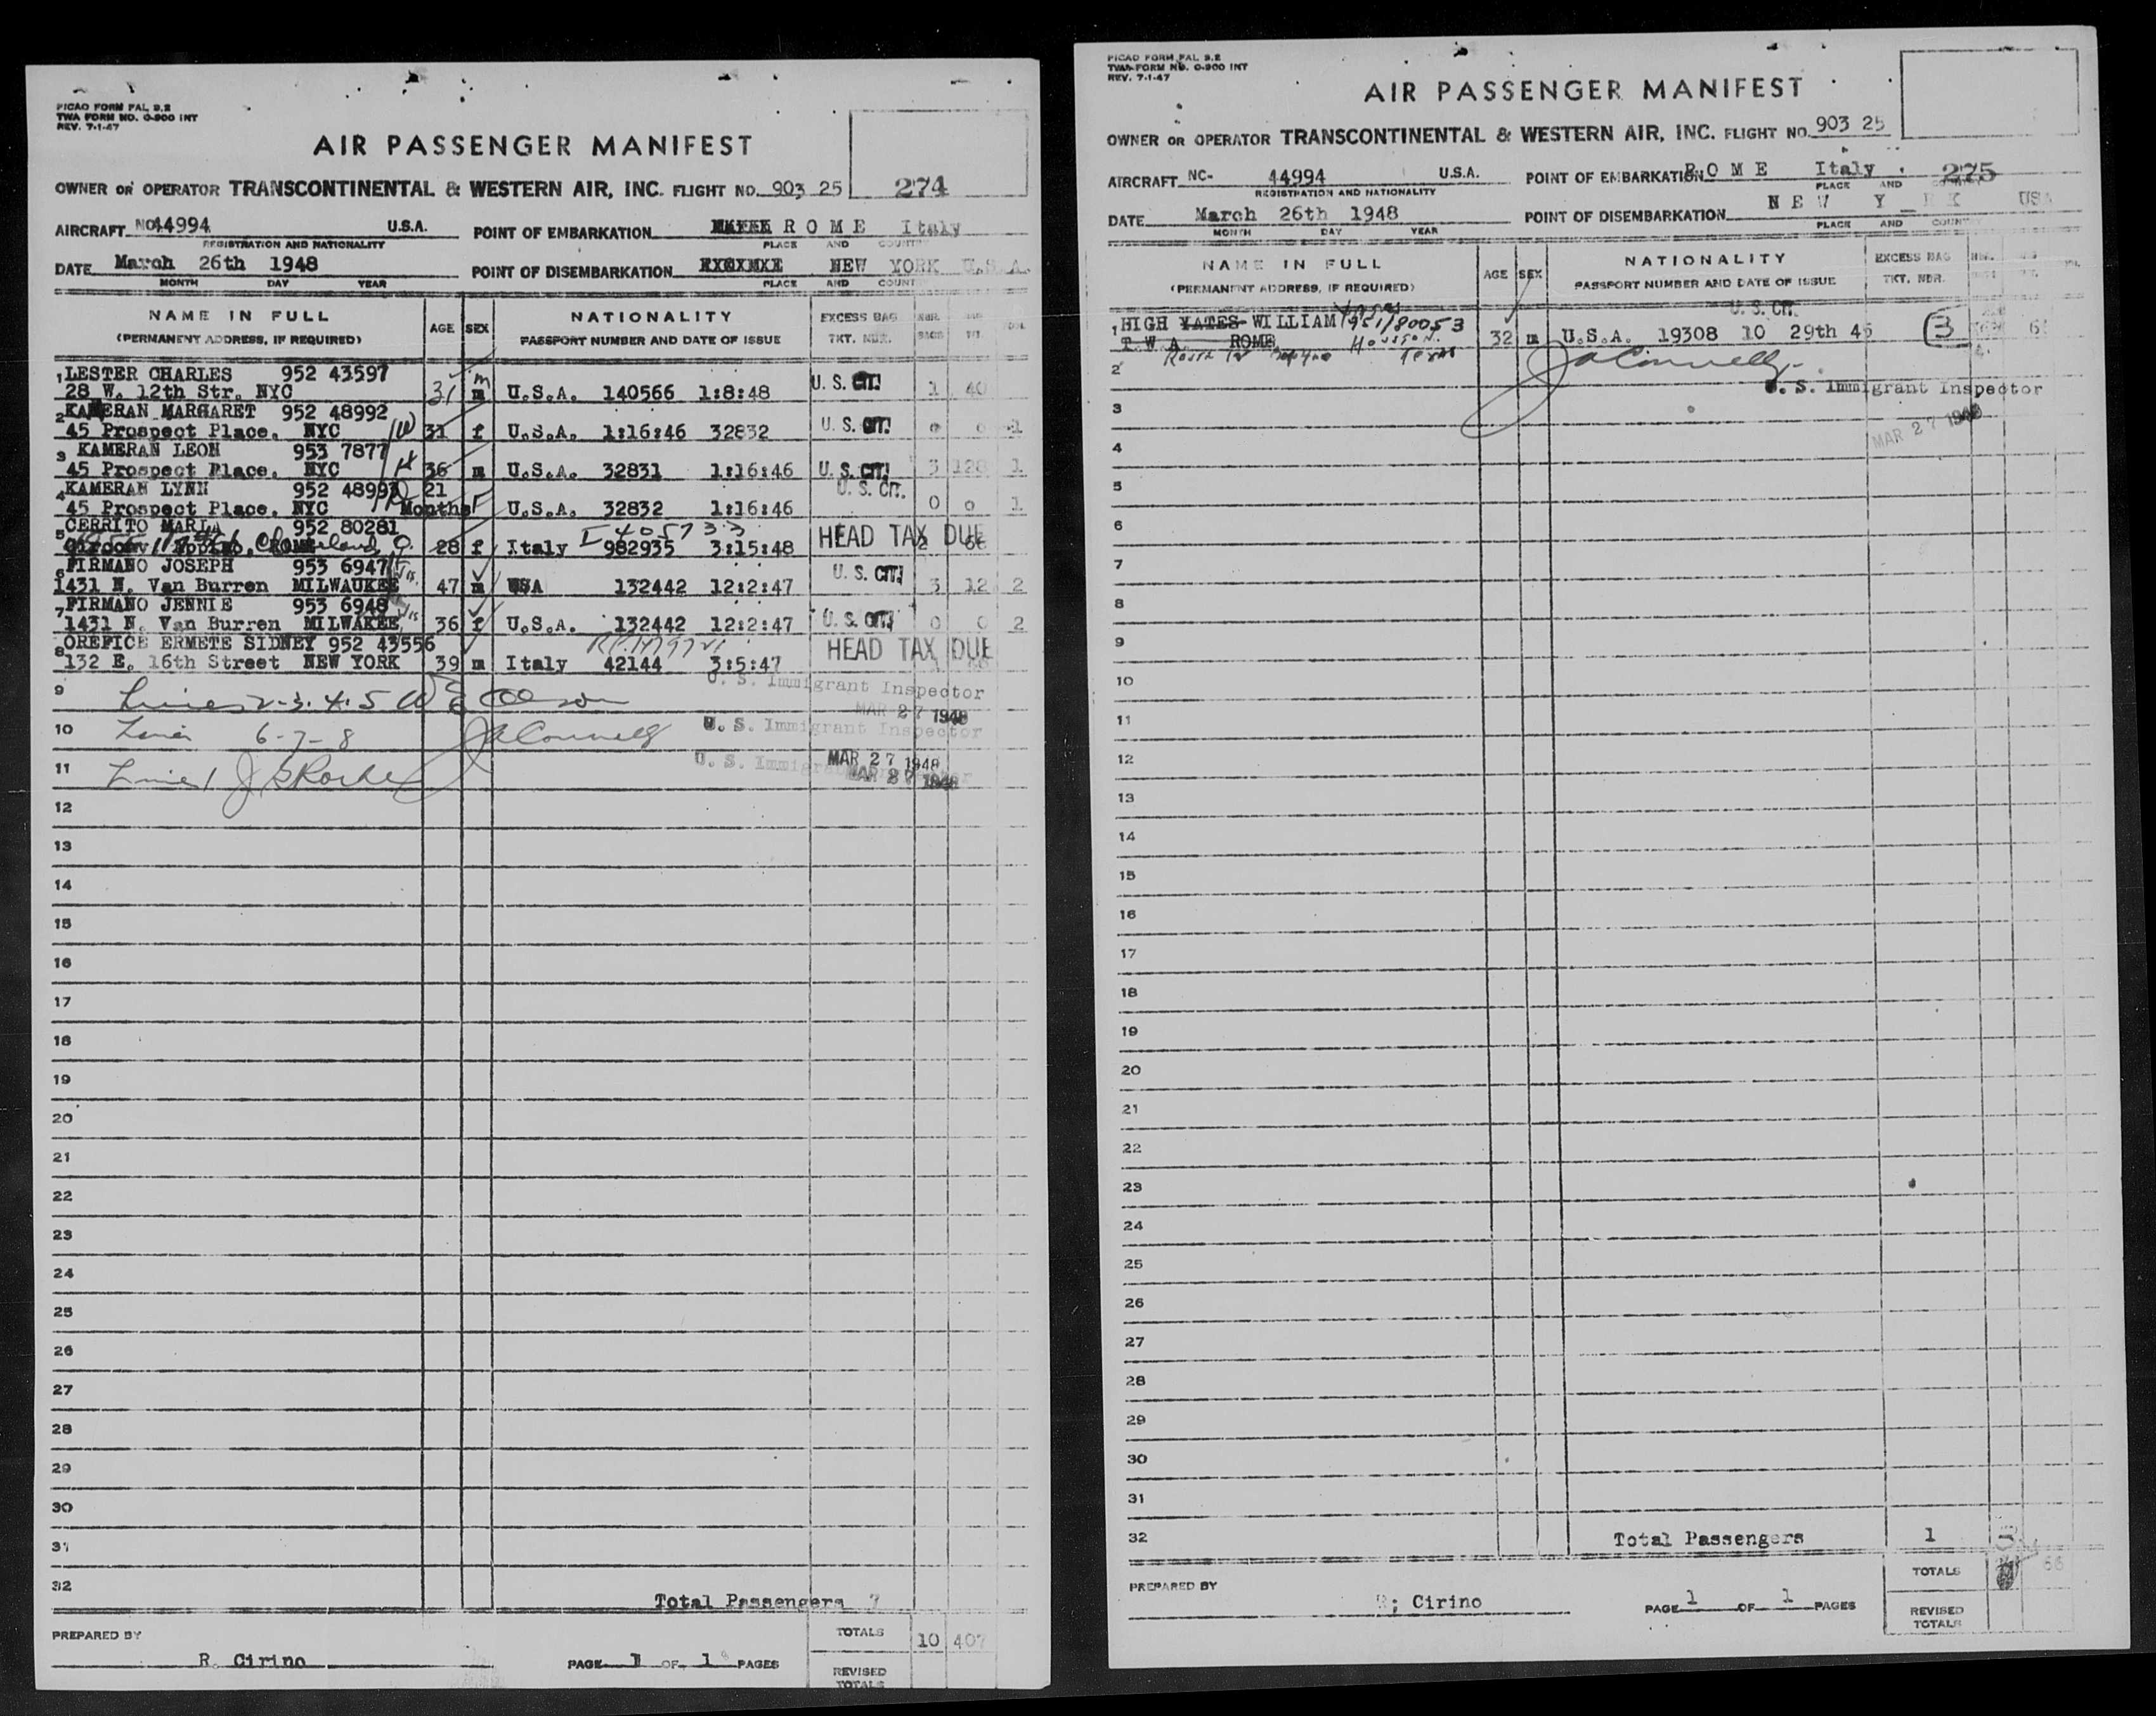 PICAO FORM PAL 9.2
TWA FORM NO. O-900 INT
REV. 7-1-47
AIR PASSENGER MANIFEST
OWNER OR OPERATOR TRANSCONTINENTAL & WESTERN AIR, INC. FLIGHT NO. 903 25
274
AIRCRAFT NC 44994 U.S.A. POINT OF EMBARKATION ROME Italy
REGISTRATION AND NATIONALITY PLACE AND COUNTRY
DATE March 26th 1948 POINT OF DISEMBARKATION NEW YORK U.S.A.
MONTH DAY YEAR PLACE AND COUNT
NAME IN FULL AGE SEX NATIONALITY EXCESS BAG
(PERMANENT ADDRESS, IF REQUIRED) PASSPORT NUMBER AND DATE OF ISSUE TKT. NBR.
1 LESTER CHARLES 952 43597
28 W. 12th Str. NYC 31 m U.S.A. 140566 1:8:48 U. S. CIT. 1 40
2 KAMERAN MARGARET 952 48992
45 Prospect Place, NYC W 31 f U.S.A. 1:16:46 32832 U. S. CIT. 0 0 1
3 KAMERAN LEON 953 7877
45 Prospect Place, NYC H 36 m U.S.A. 32831 1:16:46 U. S. CIT. 3 128 1
4 KAMERAN LYNN 952 48993 21
45 Prospect Place, NYC Months f U.S.A. 32832 1:16:46 U. S. CIT. 0 0 1
5 CERRITO MARIA 952 80281
Cleveland, O. 28 f Italy 982935 3:15:48 HEAD TAX DUE
I 405733
6 FIRMANO JOSEPH 953 6947
1431 N. Van Burren MILWAUKEE 47 m USA 132442 12:2:47 U. S. CIT. 3 12 2
7 FIRMANO JENNIE 953 6948
1431 N. Van Burren MILWAKEE 36 f U.S.A. 132442 12:2:47 U. S. CIT. 0 0 2
8 OREFICE ERMETE SIDNEY 952 43556
132 E. 16th Street NEW YORK 39 m Italy 42144 3:5:47 HEAD TAX DUE
9 Lines 2-3.4.5 W E Olson U. S. Immigrant Inspector
MAR 27 1948
10 Line 6-7-8 J A Connelly U. S. Immigrant Inspector
11 Line 1 MAR 27 1948
U. S. Immigrant Inspector MAR 27 1948
12
13
14
15
16
17
18
19
20
21
22
23
24
25
26
27
28
29
30
31
32
Total Passengers 7
PREPARED BY R. Cirino PAGE 1 OF 1 PAGES
TOTALS 10 407
REVISED TOTALS
PICAO FORM PAL 9.2
TWA FORM NO. O-900 INT
REV. 7-1-47
AIR PASSENGER MANIFEST
OWNER OR OPERATOR TRANSCONTINENTAL & WESTERN AIR, INC. FLIGHT NO. 903 25
AIRCRAFT NC- 44994 U.S.A. POINT OF EMBARKATION ROME Italy 275
REGISTRATION AND NATIONALITY PLACE AND COUNTRY
DATE March 26th 1948 POINT OF DISEMBARKATION NEW Y RK USA
MONTH DAY YEAR PLACE AND COUNTRY
NAME IN FULL AGE SEX NATIONALITY EXCESS BAG
(PERMANENT ADDRESS, IF REQUIRED) PASSPORT NUMBER AND DATE OF ISSUE TKT. NBR.
Yates U. S. CIT.
1 HIGH YATES WILLIAM 951/80053
T.W.A. ROME 32 m U.S.A. 19308 10 29th 45 3
Houston. Texas
2 J A Connelly
U. S. Immigrant Inspector
3
MAR 27 1948
4
5
6
7
8
9
10
11
12
13
14
15
16
17
18
19
20
21
22
23
24
25
26
27
28
29
30
31
32 Total Passengers 1
PREPARED BY R; Cirino PAGE 1 OF 1 PAGES
TOTALS 66
REVISED TOTALS